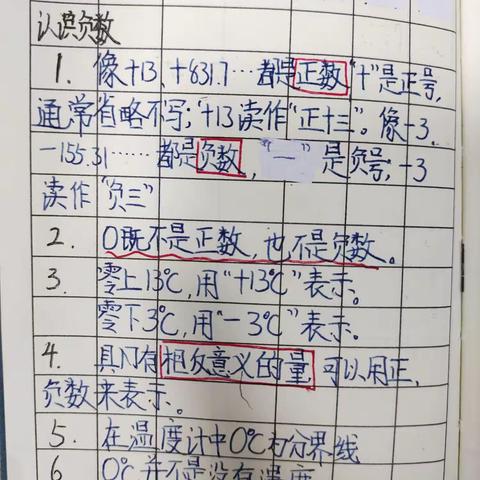 认识负数
1. 像+13、+831.7…都是正数"+"是正号,
通常省略不写;"+13读作"正十三"。像-3、
-155.31……都是负数,"-"是负号,-3
读作"负三"
2. 0既不是正数,也不是负数。
3. 零上13℃,用"+13℃"表示。
零下3℃,用"-3℃"表示。
4. 具有相反意义的量,可以用正、
负数来表示。
5. 在温度计中0℃为分界线
6 0℃并不是没有温度